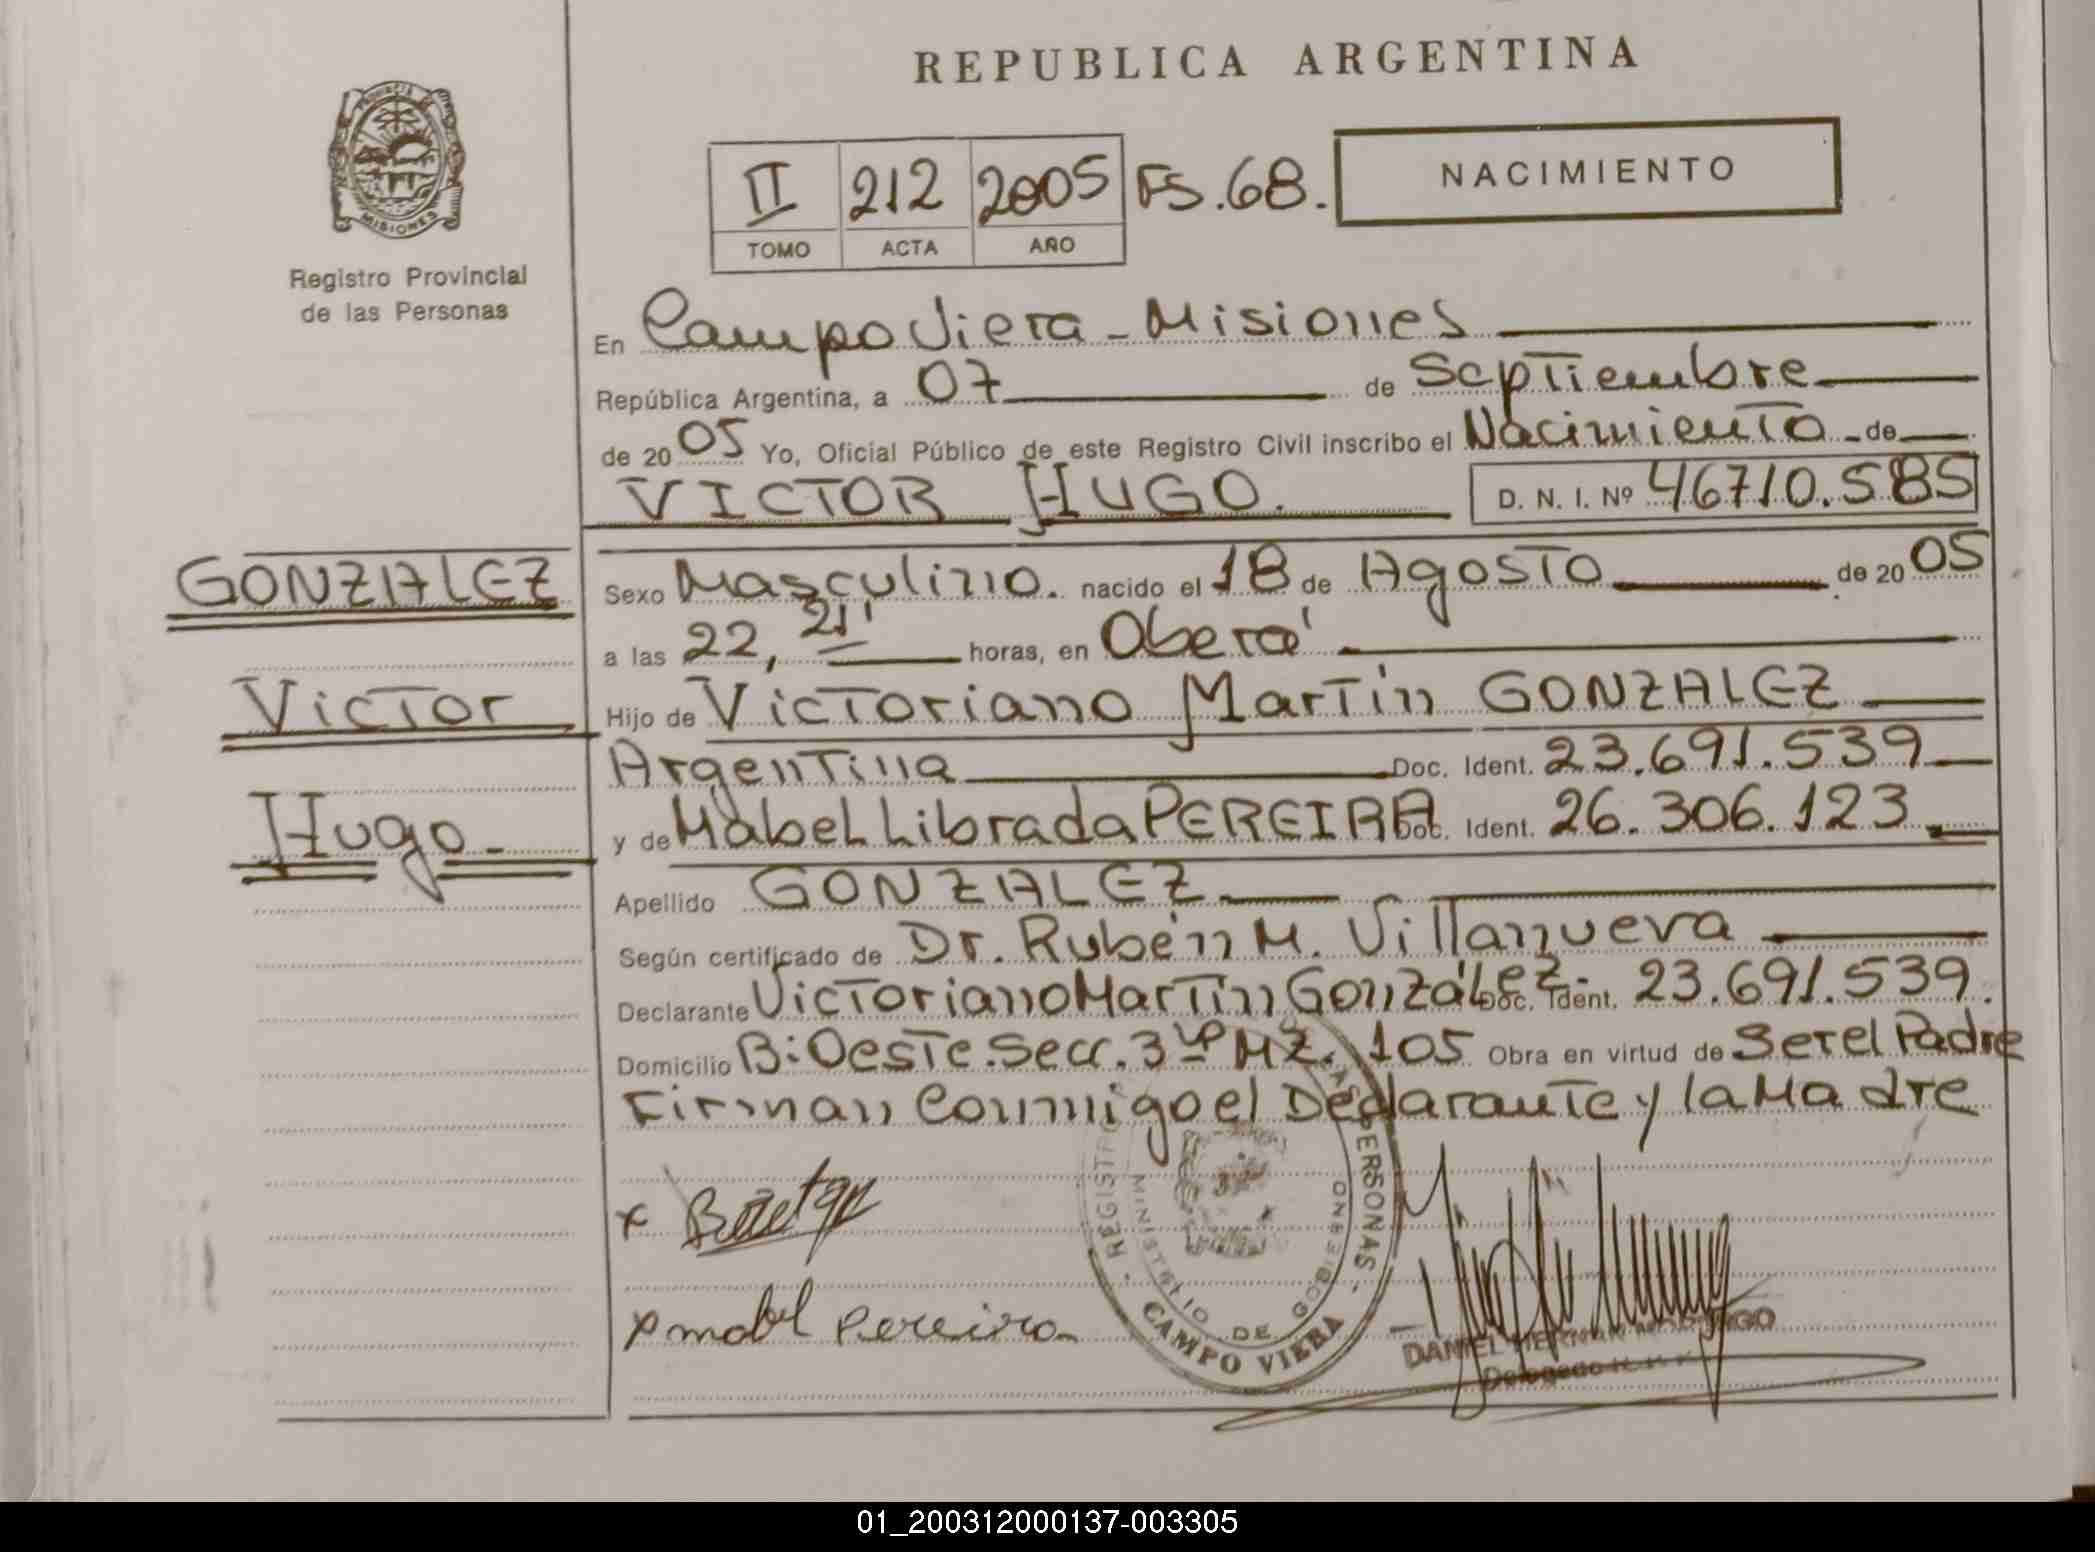 REPUBLICA ARGENTINA
PROVINCIA DE MISIONES
Registro Provincial
de las Personas
II 212 2005 FS.68.
TOMO ACTA AÑO
NACIMIENTO
En Campo Viera - Misiones
República Argentina, a 07 de Septiembre
de 2005 Yo, Oficial Público de este Registro Civil inscribo el Nacimiento - de
VICTOR HUGO. D. N. I. Nº 46710.585
GONZALEZ
Victor
Hugo.-
Sexo Masculino. nacido el 18 de Agosto de 2005
a las 22, 21' horas, en Oberá
Hijo de Victoriano Martín GONZALEZ
Argentina Doc. Ident. 23.691.539
y de Mabel Librada PEREIRA Doc. Ident. 26.306.123
Apellido GONZALEZ
Según certificado de Dr. Rubén M. Villanueva
Declarante Victoriano Martín González. Doc. Ident. 23.691.539.
Domicilio B: Oeste. Secc. 3 Mz. 105 Obra en virtud de Ser el Padre
Firman Conmigo el Declarante y la Madre
x
x mabel Pereira
REGISTRO PERSONAS
MINISTERIO DE GOBIERNO
CAMPO VIERA
DANIEL
Delegado
01_200312000137-003305